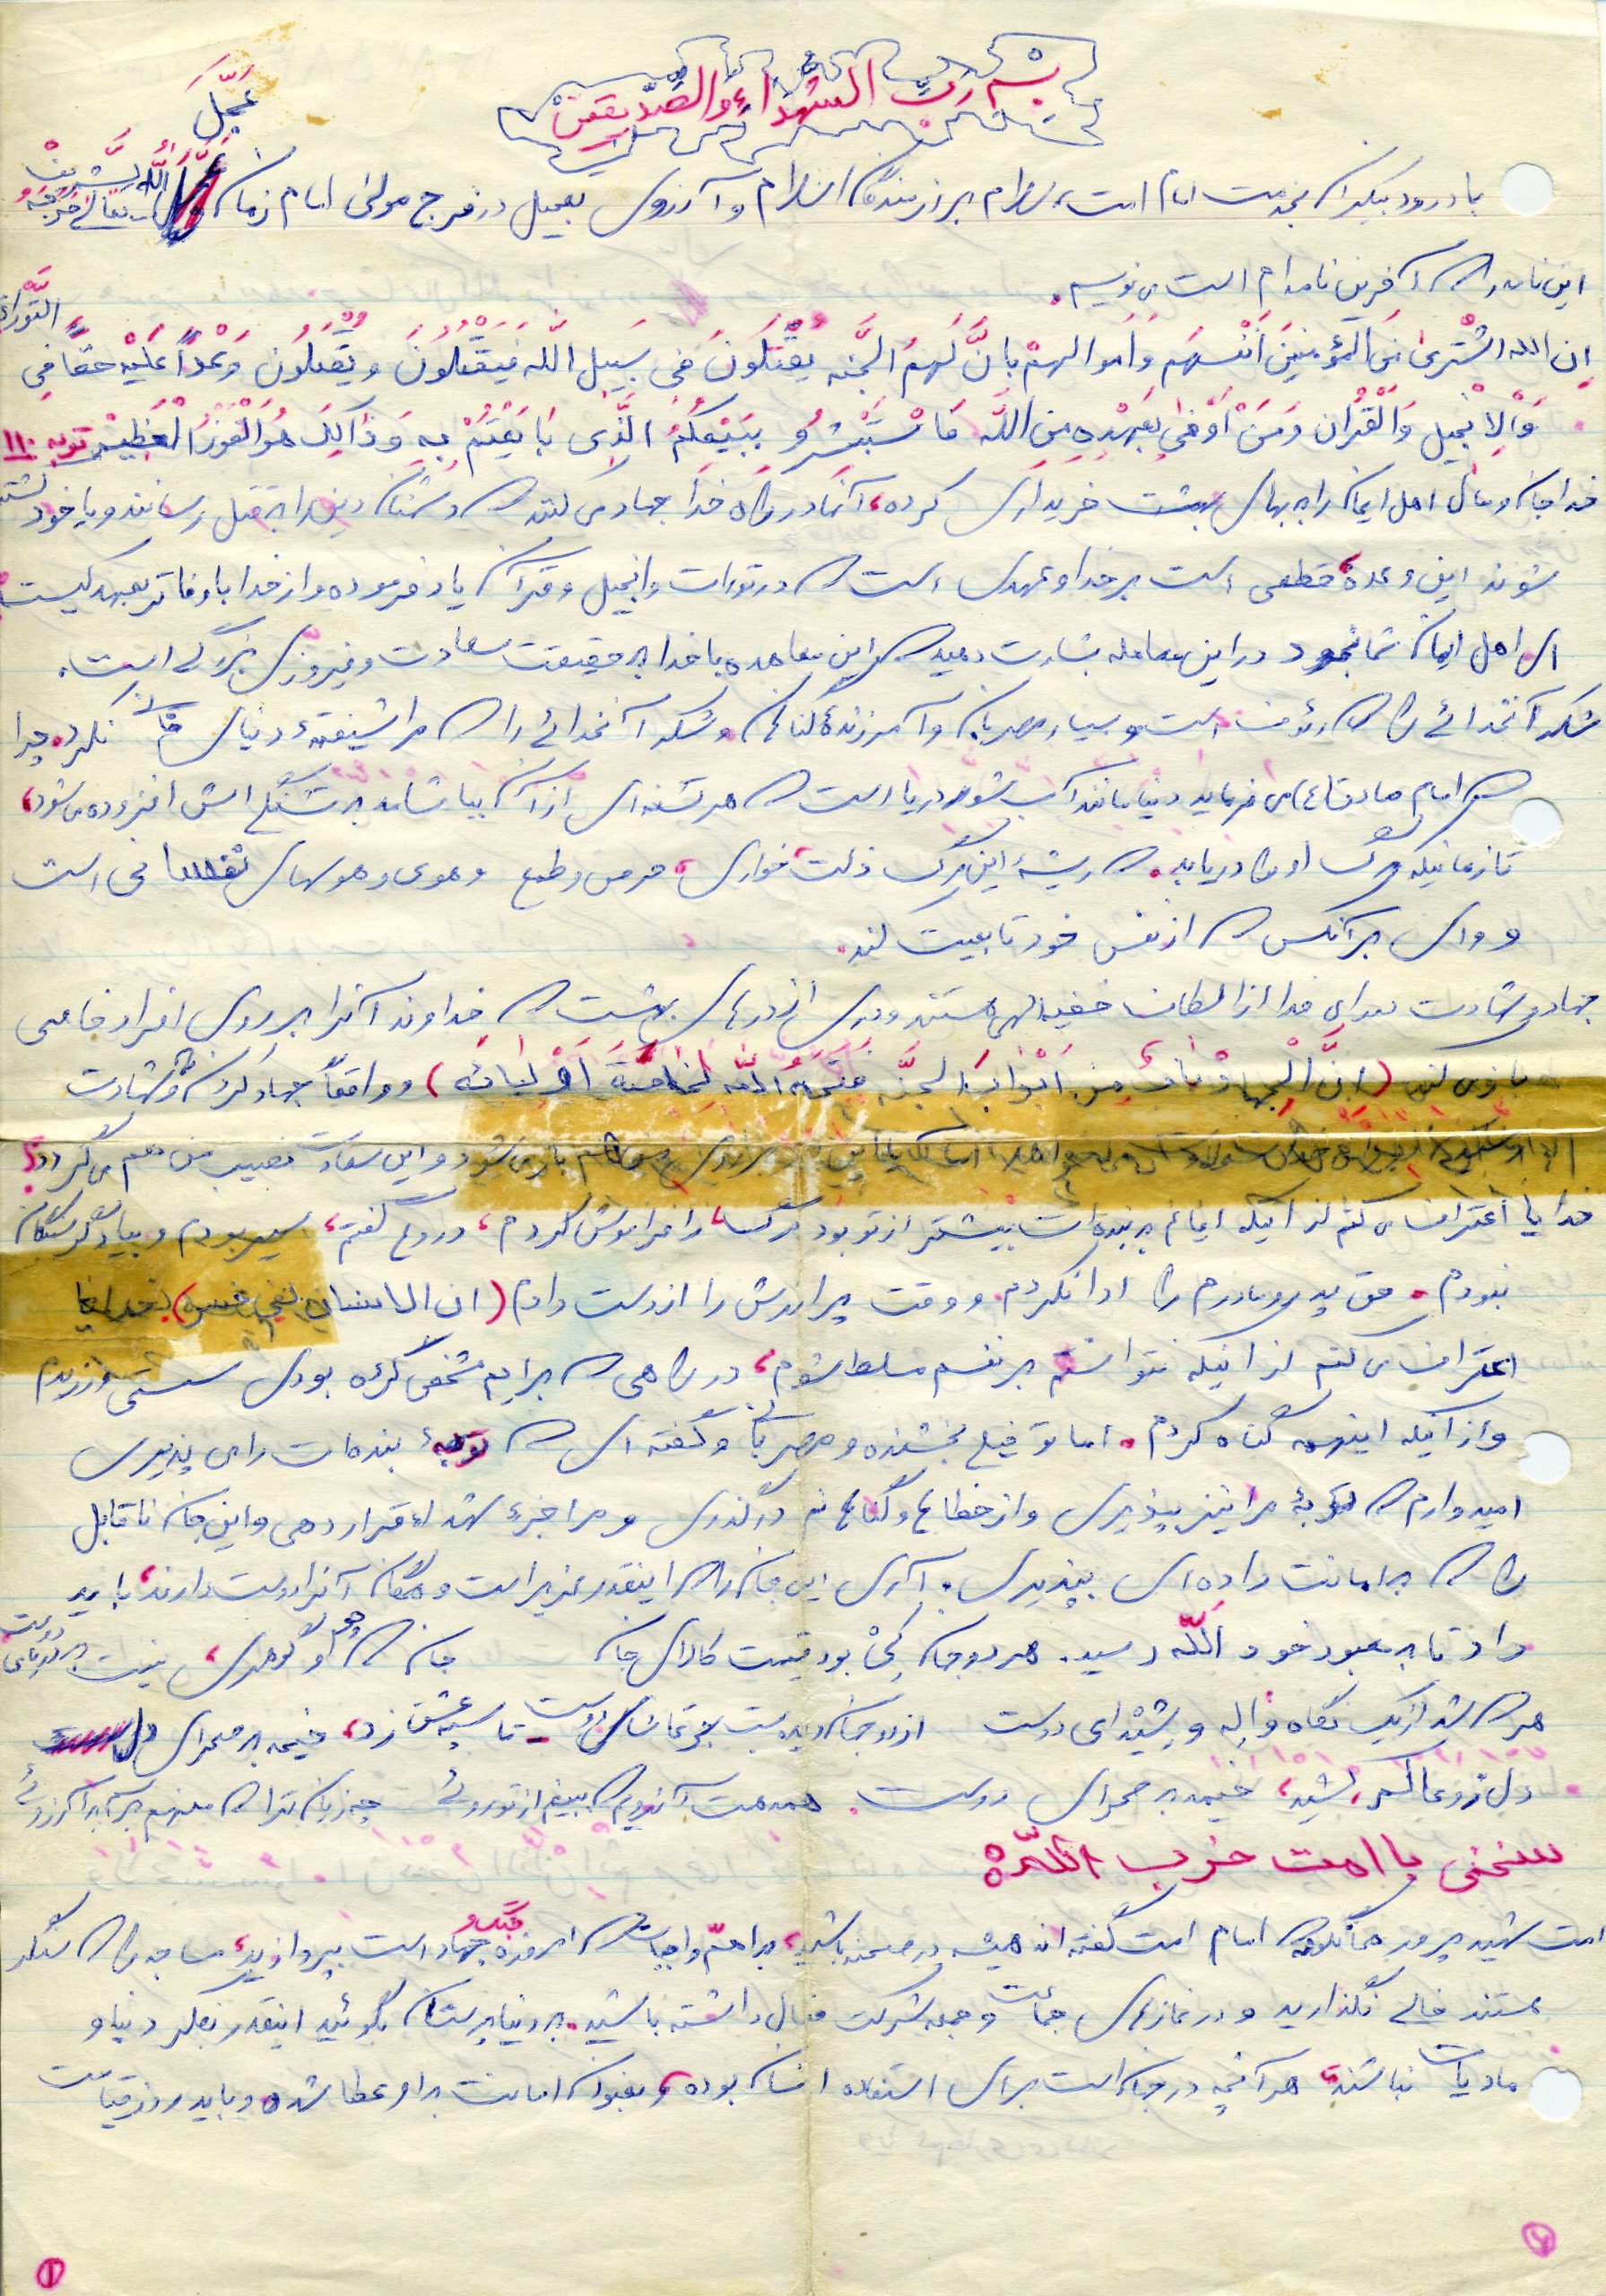 بسم رب الشهداء والصدیقین
با درود بیکران بخدمت امام امت، سلام بر رزمندگان اسلام و آرزوی تعجیل در فرج مولی امام زمان عَجَّلَ اللّه تعالی فرجهُ الشریف
این نامه را که آخرین نامه‌ام است می‌نویسم.
ان الله اشْتَرىٰ مِنَ المؤمنینَ اَنْفُسَهُم وَ اَموالهمْ بِانَّ لَهمُ الجَّنه یُقْتلُونَ فی سَبیل اللّه فَیَقْتُلُونَ وَ یُقْتَلُون وَعْداً عَلَیْهِ حَقّاً فِی التَّوْراةِ
وَ الْاِنْجیل وَ الْقُرْان وَ مَنْ اَوْفیٰ بِعَهْدِهِ مِنَ اللَّه فَاسْتَبْشِرُو بِبَیْعِکُمُ الَّذی بَایَعْتُمْ بِهِ وَ ذالِکَ هُوَ الْفَوْزُ الْعَظیمْ توبه ۱۱۰
خدا جان و مال اهل ایمان را به بهای بهشت خریداری کرده، آنها در راه خدا جهاد می‌کنند که دشمنان دین را به قتل رسانند و یا خود کشته
شوند این وعدهٔ قطعی است بر خدا و عهدی است که در تورات و انجیل و قرآن یاد فرموده و از خدا باوفاتر بعهد کیست
ای اهل ایمان شما بخود در این معامله بشارت دهید که این معاهده با خدا به حقیقت سعادت و فیروزی بزرگی است.
شکر آنخدائی را که رئوف است و بسیار مهربان و آمرزندهٔ گناهان و شکر آنخدائی را که مرا شیفتهٔ دنیای فانی نکرد. چرا
که امام صادق(ع) می‌فرماید دنیا مانند آب شور دریا است که هر تشنه‌ای از آن بیاشامد بر تشنگی‌اش افزوده می‌شود،
تا زمانیکه مرگ او را دریابد. که ریشهٔ این مرگ ذلت، خواری، حرص و طمع و هوی و هوسهای نفسانی است
و وای بر آنکس که از نفس خود تابعیت کند.
جهاد و شهادت برای خدا از الطاف خفیه الهی هستند و دری از درهای بهشت که خداوند آنرا بر روی افراد خاصی
باز می‌کند (اِنَّ الْجِهادَ بابٌ مِن اَبْوابِ الجنَّه فَتَحَهُ اللّه لِخاصَّةَ اَوْلیائه) و واقعاً جهاد کردن و شهادت
بر روی من هم باز می‌شود و این سعادت نصیب من هم می‌گردد؟
خدایا اعتراف می‌کنم از اینکه ایمانم به بنده‌ات بیشتر از تو بود مرگ را فراموش کردم، دروغ گفتم، سیر بودم و بیاد گرسنگان
نبودم. حق پدر و مادرم را ادا نکردم. و وقت پر ارزش را از دست دادم (ان الانسان لفی خسر) خدایا
اعتراف می‌کنم از اینکه نتوانستم بر نفسم مسلط شوم، در راهی که برایم مشخص کرده بودی سستی ورزیدم
و از اینکه اینهمه گناه کردم. اما تو خیلی بخشنده و مهربانی و گفته‌ای که توبهٔ بنده‌ات را می‌پذیری
امیدوارم که توبهٔ مرا نیز بپذیری و از خطاها و گناهانم درگذری و مرا جزء شهداء قرار دهی و این جان ناقابل
را که به امانت داده‌ای بپذیری. آری این جان را که اینقدر عزیز است و همگان آنرا دوست دارند، باید
داد تا به معبود خود اَللّه رسید. هر دو جهان کِیْ بود قیمت کالای جان جان که چو او گوهری، نیست به دریای دوست
هر که شد از یک نگاه واله و شیدای دوست از دو جهان دیده بست بر تماشای دوست - تا سپه عشق زد، خیمه به صحرای دل
دل ز دو عالم کشید، خیمه به صحرای دوست. همه هست آرزویم که ببینم از تو روئی چه زیان ترا که من هم برسم به آرزوئی
سخنی با امت حزب اللّه
امت شهیدپرور همانگونه که امام امت گفته‌اند همیشه در صحنه باشید، به اهمّ واجبات که امروزه جنگ و جهاد است بپردازید، مساجد را که سنگر
هستند خالی نگذارید و در نمازهای جماعت و جمعه شرکت فعال داشته باشید. به دنیاپرستان بگوئید اینقدر بفکر دنیا و
مادیات نباشند، هر آنچه در جهان است برای استفاده انسان بوده و بعنوان امانت به او عطا شده و باید روز قیامت
۱